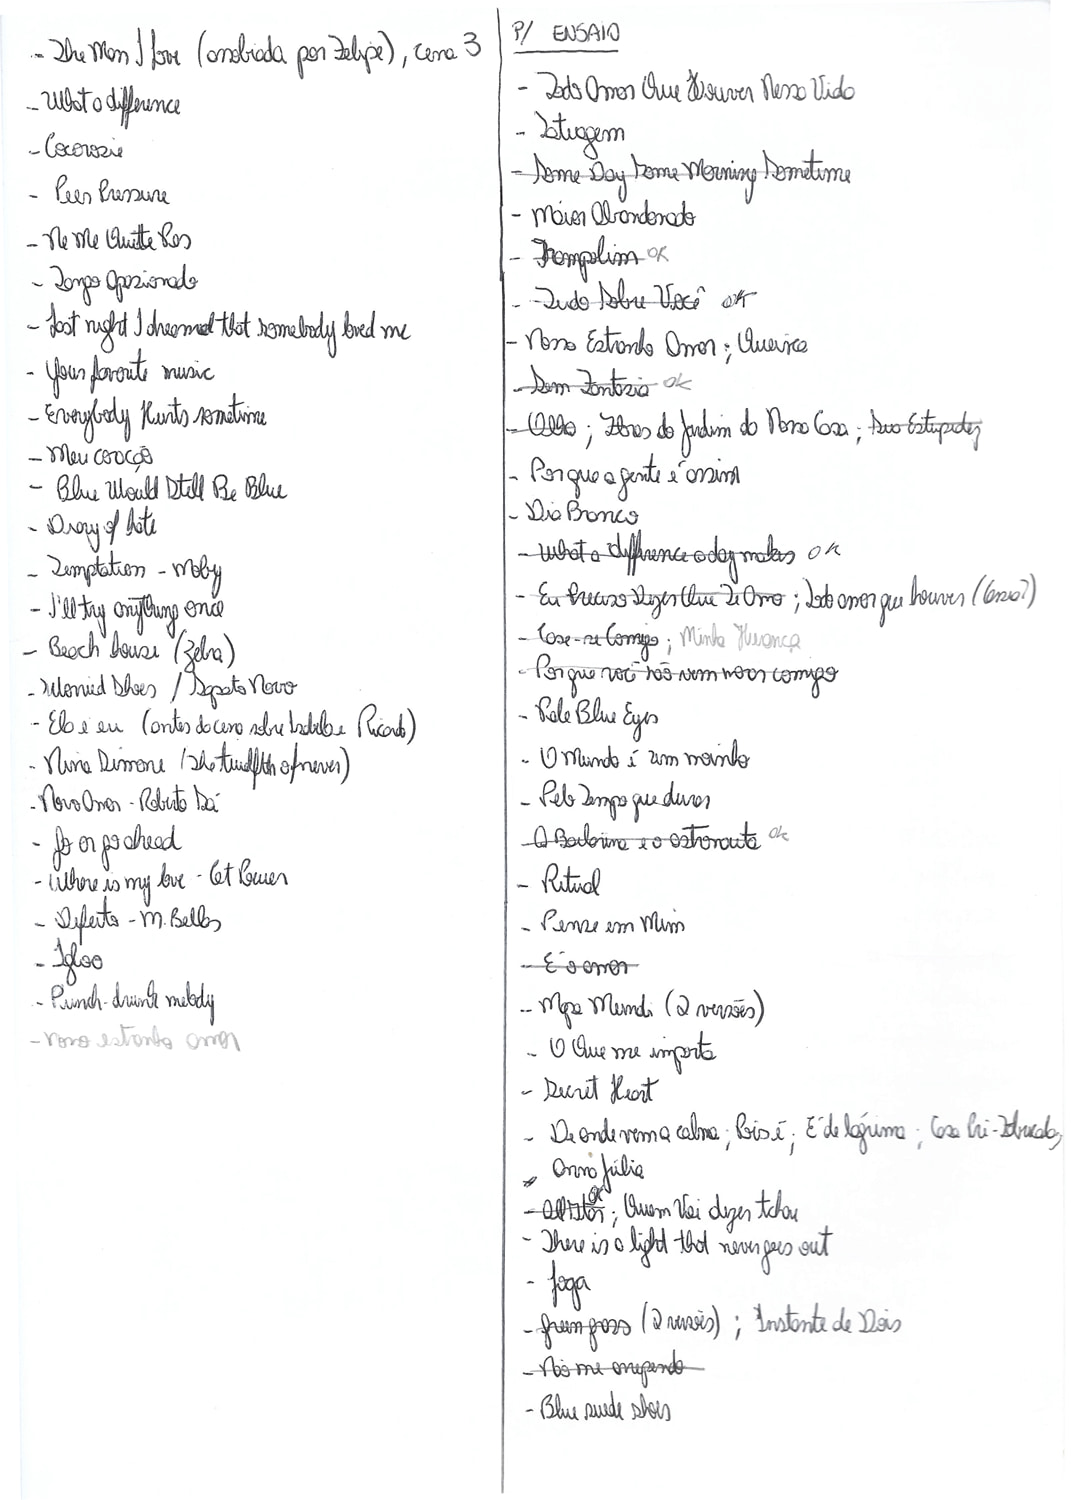 - The Man I love (assobiada por Felipe), cena 3
- What a difference
- Cocorosie
- Peer Pressure
- Ne Me Quitte Pas
- Tango Apaixonado
- Last night I dreamed that somebody loved me
- Your favorite music
- Everybody Hurts sometime
- Meu coração
- Blue Would Still Be Blue
- Diary of hate
- Temptation - Moby
- I'll try anything once
- Beach house (Zebra)
/ Sapato Novo
- Ela e eu (antes da cena sobre Isabella e Ricardo)
- Nina Simone (The twelfth of never)
- Novo Amor - Roberta Sá
- Go on go ahead
- Where is my love - Cat Power
- Defeito - M. Bellas
- Igloo
- Punch-drunk melody
- nosso estranho amor
P/ ENSAIO
- Todo Amor Que Houver Nessa Vida
- Tatuagem
- Some Day Some Morning Sometime
- Maior Abandonado
- Trampolim OK
- Tudo Sobre Você OK
- Nosso Estranho Amor; Queixa
- Sem Fantasia OK
- Olha; Flores do Jardim da Nossa Casa; Sua Estupidez
- Por que a gente é assim
- Dia Branco
- What a difference a day makes OK
- Eu Preciso Dizer Que Te Amo; Todo amor que houver
- Case-se Comigo; Minha Herança
- Por que você não vem morar comigo
- Pale Blue Eyes
- O Mundo é um moinho
- Pelo Tempo que durar
- A Bailarina e o astronauta OK
- Ritual
- Pense em Mim
- É o amor
- Mapa Mundi (2 versões)
- O Que me importa
- Secret Heart
- De onde vem a calma; Pois é; É de lágrima; Casa Pré-Fabricada;
Anna Júlia
; Quem Vai dizer tchau
- There is a light that never goes out
- Joga
- Grampos (2 versões); Instante de Dois
- Nas me
- Blue suede shoes